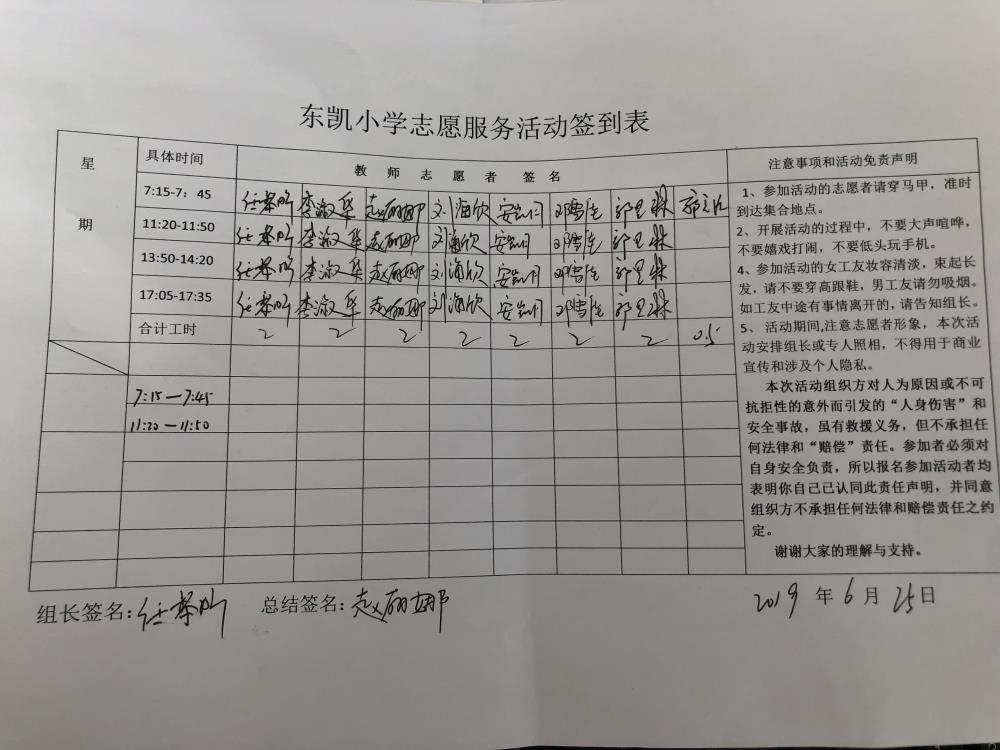 东凯小学志愿服务活动签到表
星期
具体时间
教 师 志 愿 者 签 名
注意事项和活动免责声明
7:15-7：45 李淑华 赵丽娜 刘海欣
11:20-11:50 李淑华 赵丽娜 刘海欣
13:50-14:20 李淑华 赵丽娜 刘海欣
17:05-17:35 李淑华 赵丽娜 刘海欣
合计工时 2 2 2 2 2 2 2 0.5
7:15—7:45
11:20—11:50
1、参加活动的志愿者请穿马甲，准时
到达集合地点。
2、开展活动的过程中，不要大声喧哗，
不要嬉戏打闹，不要低头玩手机。
4、参加活动的女工友妆容清淡，束起长
发，请不要穿高跟鞋，男工友请勿吸烟。
如工友中途有事情离开的，请告知组长。
5、活动期间,注意志愿者形象，本次活
动安排组长或专人照相，不得用于商业
宣传和涉及个人隐私。
本次活动组织方对人为原因或不可
抗拒性的意外而引发的“人身伤害”和
安全事故，虽有救援义务，但不承担任
何法律和“赔偿”责任。参加者必须对
自身安全负责，所以报名参加活动者均
表明你自己已认同此责任声明，并同意
组织方不承担任何法律和赔偿责任之约
定。
谢谢大家的理解与支持。
组长签名: 总结签名:赵丽娜 2019 年 6 月 25 日